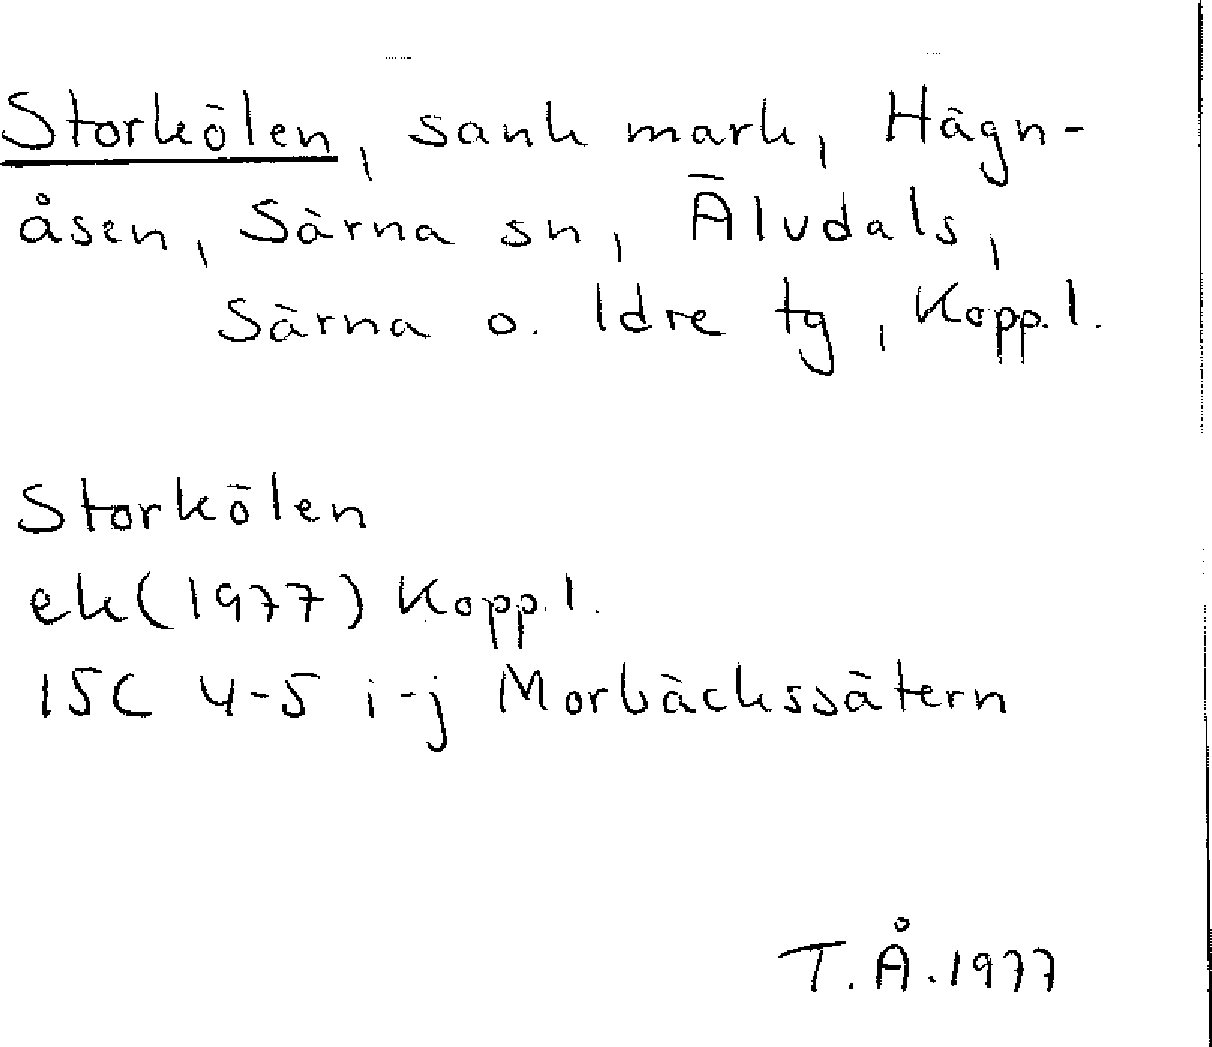 Storkölen, sank mark, Hägn-
åsen, Särna sn, Älvdals,
Särna o. Idre tg, Kopp.l.
Storkölen
ek(1977) Kopp.l.
15C 4-5 i-j Morbäckssätern
T.Å.1977